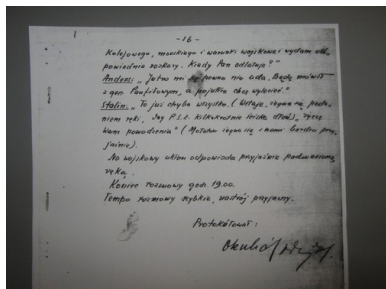 - 16 -
Kolejowego, morskiego i warunki wojskowe i wydam od-
powiednie rozkazy. Kiedy Pan odlatuje?"
Anders: „Jutro mi się pewno nie uda. Będę mówił
z gen. Panfiłowym, a pojutrze chcę wylecieć."
Stalin: „To już chyba wszystko. (Wstaje, żegna się poda-
niem ręki, kilkakrotnie ściska dłoń). „Życzę
Wam powodzenia" (Mołotow żegna się z nami bardzo przy-
jaźnie).
Na wojskowy ukłon odpowiada przyjaźnie podniesioną
ręką.
Koniec rozmowy godz. 19.00.
Tempo rozmowy szybkie, nastrój przyjazny.
Protokółował: